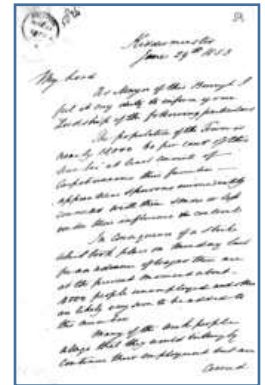 Kidderminster
June 29th 1853
My Lord
As Mayor of this Borough I
feel it my duty to inform your
Lordship of the following particulars
The population of the Town is
nearly 18,000 60 per cent of this
at least consist of
Carpet weavers their families
connected with them
under their influence
In consequence of a strike
which took place on Monday last
for an advance of wages there are
at the present moment about
4000 people unemployed and others
are likely very soon to be added to
the number
Many of the work people
allege that they would willingly
continue their employment but are